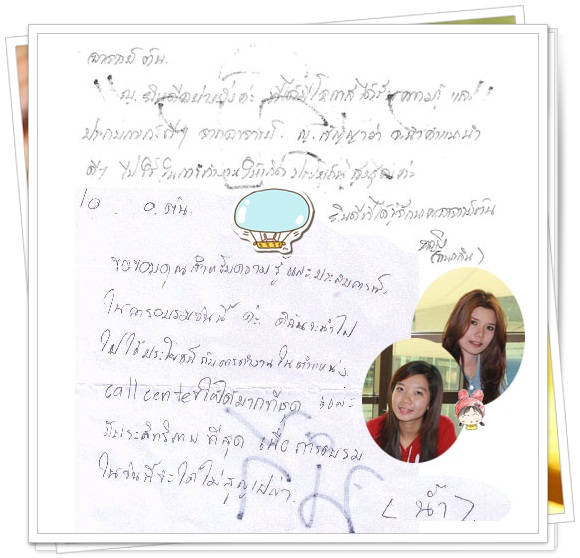 อาจารย์ ต้น.
ญ. ยินดีอย่างยิ่งค่ะ ที่ได้มีโอกาสได้รับความรู้ และ
ประสบการณ์ดีๆ จากอาจารย์. ญ. สัญญาว่า จะนำคำแนะนำ
ดีๆ ไปใช้ในการทำงานให้เกิดประโยชน์สูงสุดค่ะ
ยินดีที่ได้รู้จักนะคะอาจารย์ต้น
To อ. ต้น.
ขอขอบคุณสำหรับความรู้และประสบการณ์
ในการอบรมวันนี้ ค่ะ ดิฉันจะนำไป
ไปใช้ประโยชน์กับการทำงานในตำแหน่ง
call center ให้ได้มากที่สุด และ
มีประสิทธิภาพ ที่สุด เพื่อ การอบรม
ในวันนี้จะได้ไม่สูญเปล่า.
(น้ำ).